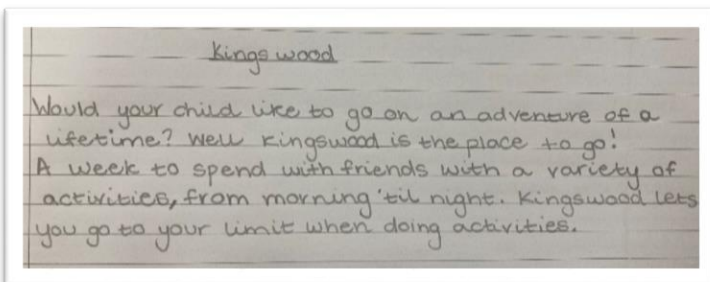 Kingswood
Would your child like to go on an adventure of a
lifetime? Well Kingswood is the place to go!
A week to spend with friends with a variety of
activities, from morning 'til night. Kingswood lets
you go to your limit when doing activities.